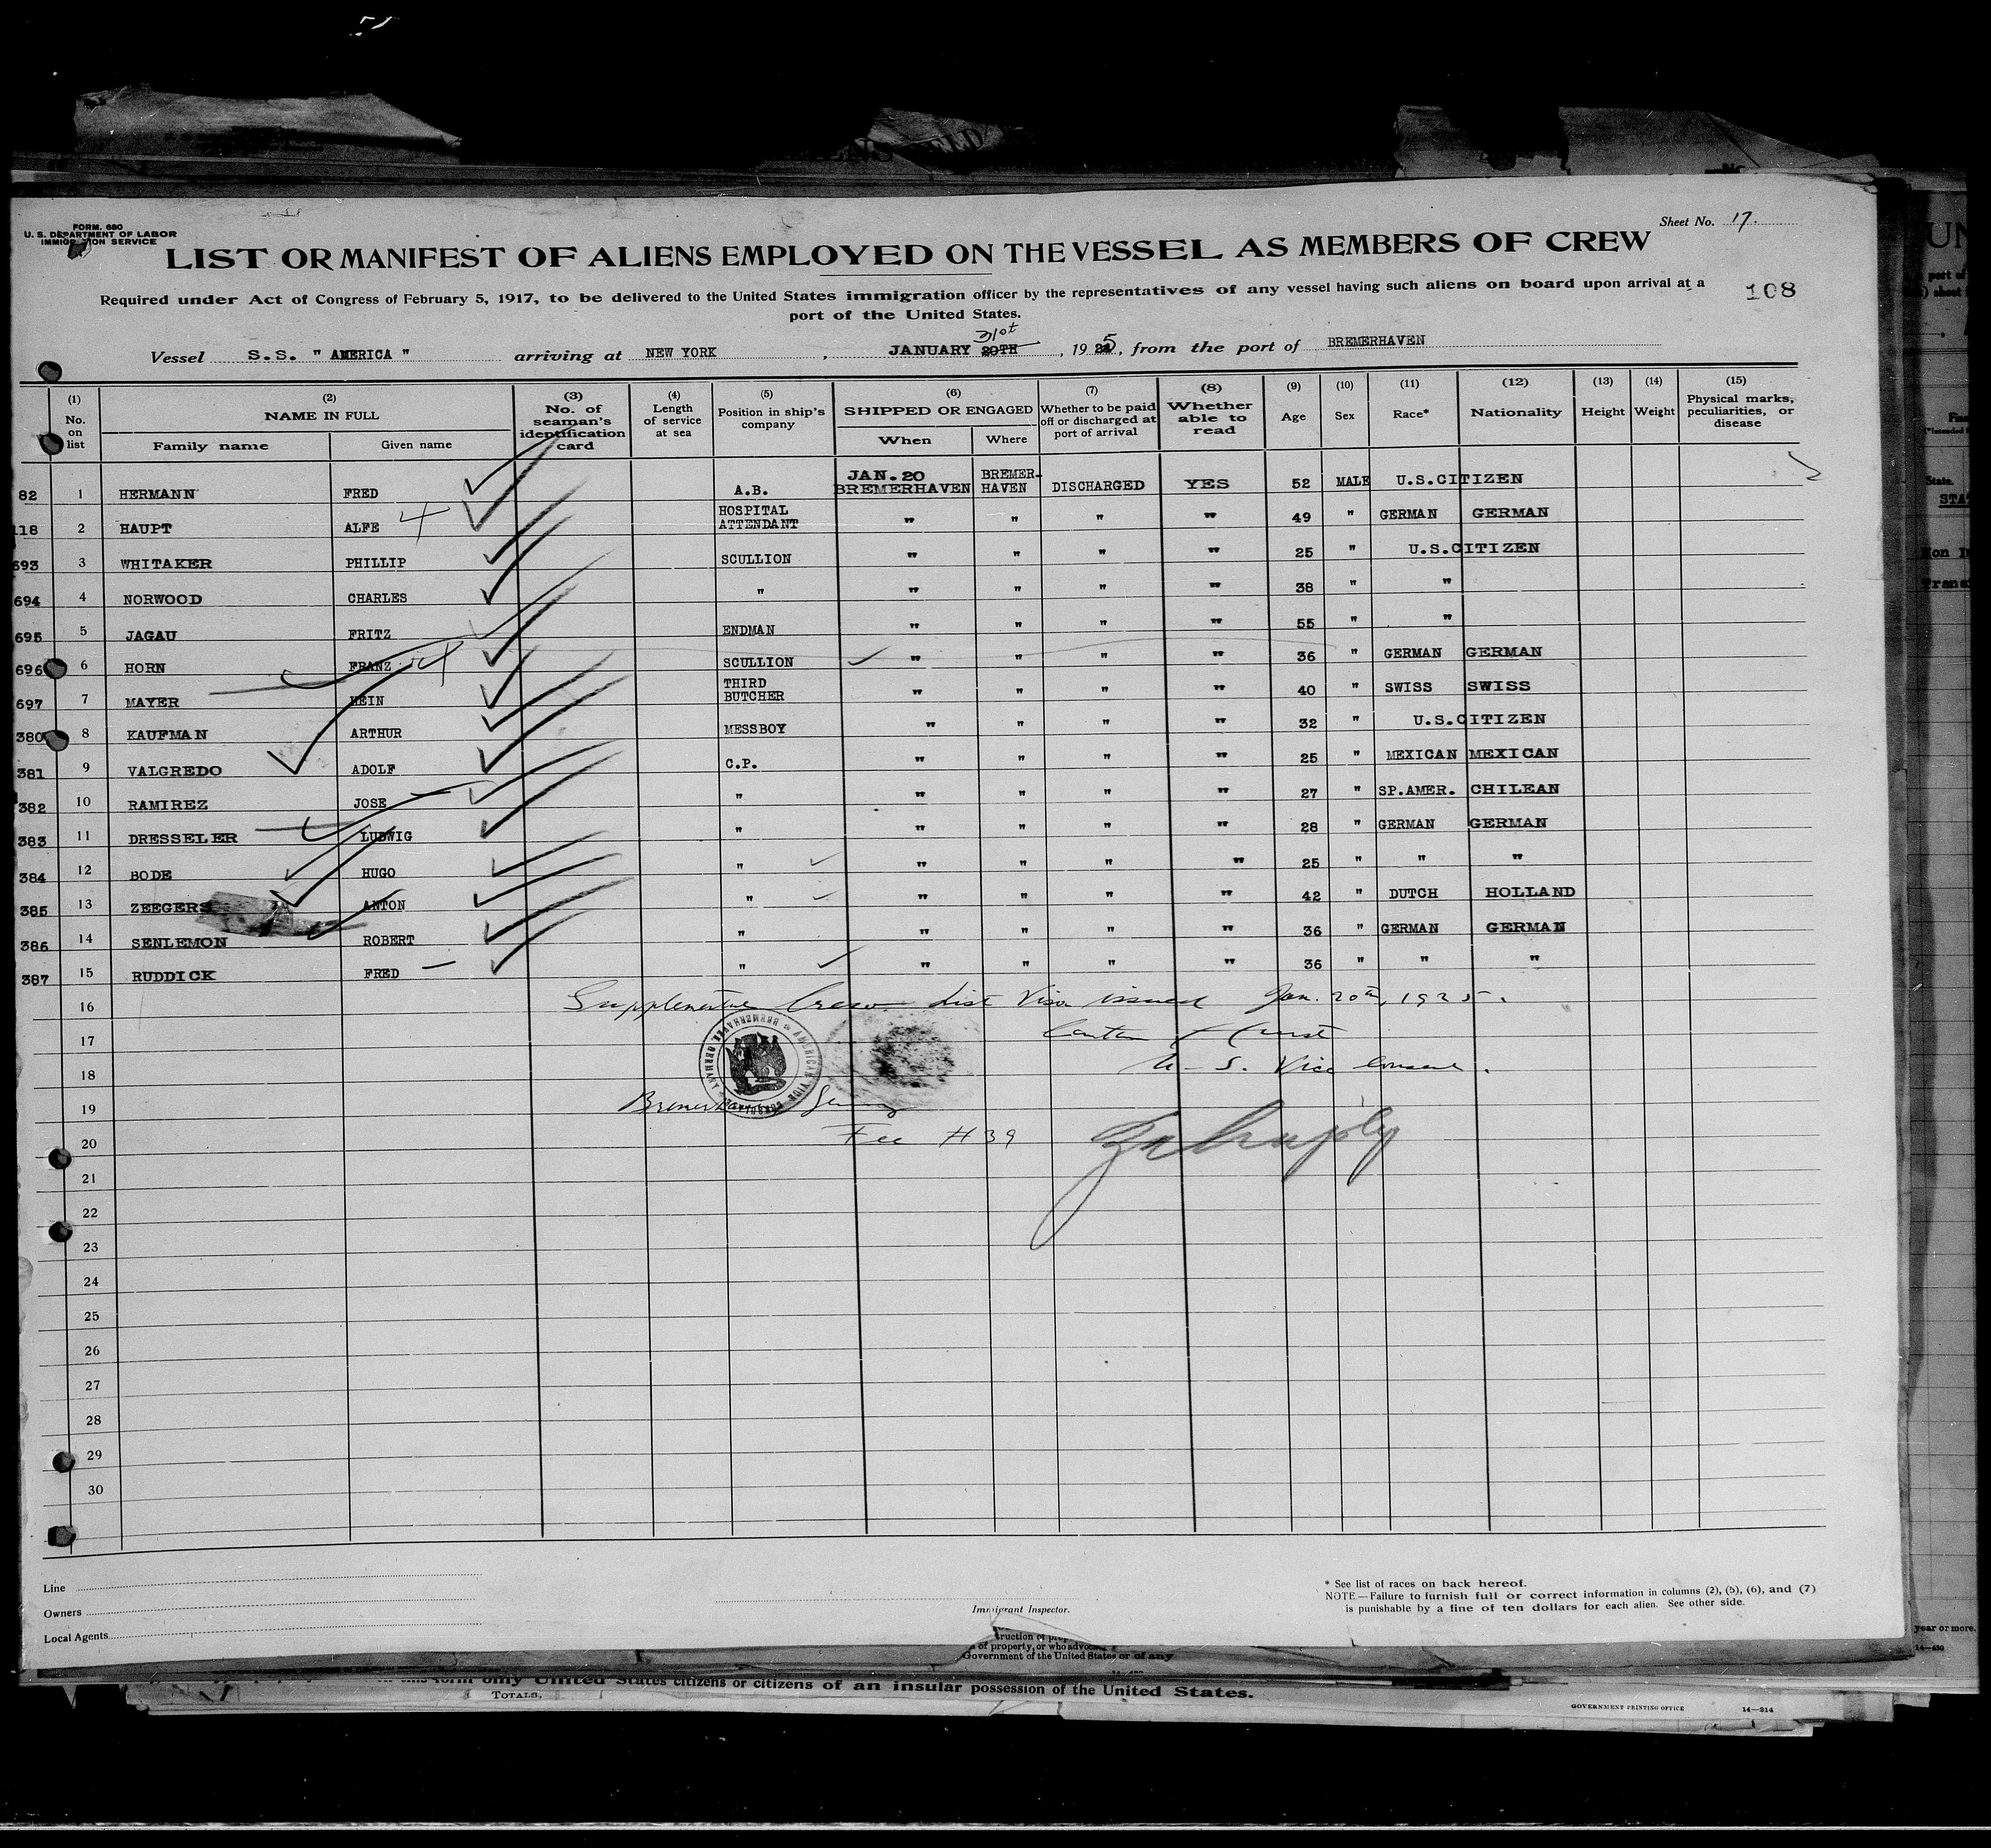 FORM. 680
U. S. DEPARTMENT OF LABOR
IMMIGRATION SERVICE
Sheet No. 17.
LIST OR MANIFEST OF ALIENS EMPLOYED ON THE VESSEL AS MEMBERS OF CREW
Required under Act of Congress of February 5, 1917, to be delivered to the United States immigration officer by the representatives of any vessel having such aliens on board upon arrival at a
port of the United States.
108
31st
Vessel S.S. " AMERICA " arriving at NEW YORK , JANUARY 20TH , 1925, from the port of BREMERHAVEN
(1) No. on list (2) NAME IN FULL Family name Given name (3) No. of seaman's identification card (4) Length of service at sea (5) Position in ship's company (6) SHIPPED OR ENGAGED When Where (7) Whether to be paid off or discharged at port of arrival (8) Whether able to read (9) Age (10) Sex (11) Race* (12) Nationality (13) Height (14) Weight (15) Physical marks, peculiarities, or disease
82 1 HERMANN FRED A.B. JAN. 20 BREMERHAVEN BREMER-HAVEN DISCHARGED YES 52 MALE U.S.CITIZEN
118 2 HAUPT ALFE HOSPITAL ATTENDANT " " " " 49 " GERMAN GERMAN
693 3 WHITAKER PHILLIP SCULLION " " " " 25 " U.S.CITIZEN
694 4 NORWOOD CHARLES " " " " " 38 " "
695 5 JAGAU FRITZ ENDMAN " " " " 55 " "
696 6 HORN FRANZ SCULLION " " " " 36 " GERMAN GERMAN
697 7 MAYER HEIN THIRD BUTCHER " " " " 40 " SWISS SWISS
380 8 KAUFMAN ARTHUR MESSBOY " " " " 32 " U.S.CITIZEN
381 9 VALGREDO ADOLF C.P. " " " " 25 " MEXICAN MEXICAN
382 10 RAMIREZ JOSE " " " " " 27 " SP.AMER. CHILEAN
383 11 DRESSELER LUDWIG " " " " " 28 " GERMAN GERMAN
384 12 BODE HUGO " " " " " 25 " " "
385 13 ZEEGERS ANTON " " " " " 42 " DUTCH HOLLAND
386 14 SENLEMON ROBERT " " " " " 36 " GERMAN GERMAN
387 15 RUDDICK FRED " " " " " 36 " " "
16 Supplementary Crew List Visa issued Jan. 20th, 1925.
17
18 U. S. Vice Consul.
AMERICAN VICE CONSULATE BREMERHAVEN, GERMANY
19 Bremerhaven Germany
20 Fee #39
21
22
23
24
25
26
27
28
29
30
Line
Owners
Local Agents
Immigrant Inspector.
* See list of races on back hereof.
NOTE—Failure to furnish full or correct information in columns (2), (5), (6), and (7)
is punishable by a fine of ten dollars for each alien. See other side.
of property, or who advoca
Government of the United States or of any
year or more.
14—430
only United States citizens or citizens of an insular possession of the United States.
TOTALS,
GOVERNMENT PRINTING OFFICE 14—214